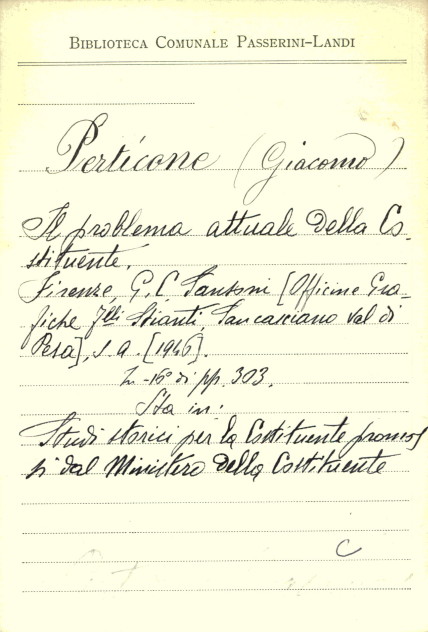 BIBLIOTECA COMUNALE PASSERINI-LANDI
Perticone (Giacomo)
Il problema attuale della Co-
stituente.
Firenze, G. C. Sansoni [Officine Gra-
fiche F.lli Stianti, Sancasciano Val di
Pesa], s. a. [1946].
In-16° di pp. 303.
Sta in:
Studi storici per la Costituente promos
si dal Ministero della Costituente
C